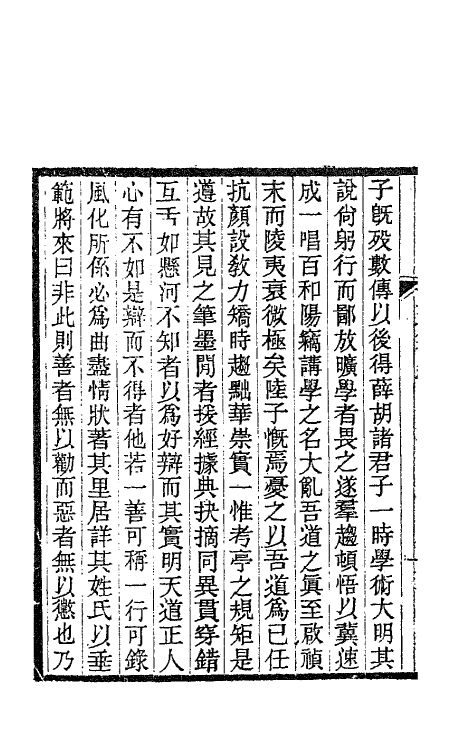 子旣歿數傳以後得薛胡諸君子一時學術大明其
說尙躬行而鄙放曠學者畏之遂羣趨頓悟以冀速
成一唱百和陽竊講學之名大亂吾道之眞至啟禎
末而陵夷衰微極矣陸子慨焉憂之以吾道爲已任
抗顏設敎力矯時趨黜華崇實一惟考亭之規矩是
遵故其見之筆墨閒者援經據典抉摘同異貫穿錯
互舌如懸河不知者以爲好辯而其實明天道正人
心有不如是辯而不得者他若一善可稱一行可錄
風化所係必爲曲盡情狀著其里居詳其姓氏以垂
範將來曰非此則善者無以勸而惡者無以懲也乃